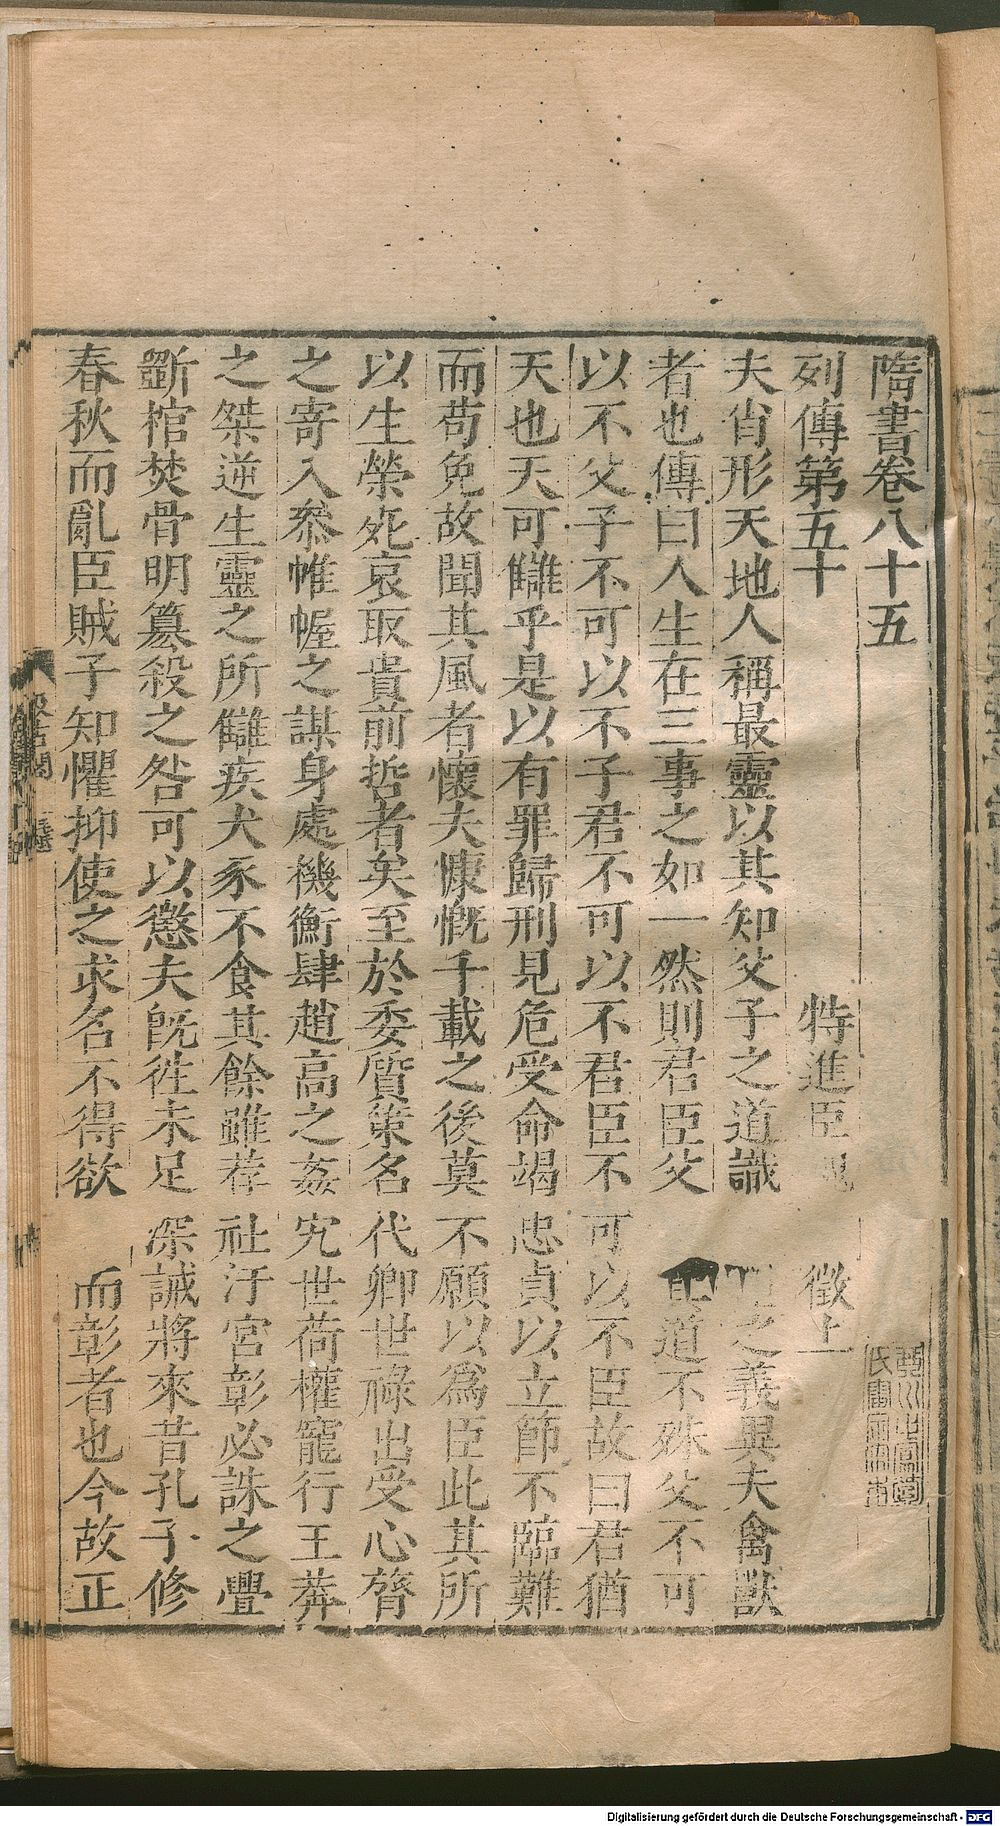 隋書卷八十五
列傳第五十 特進臣魏 徵上
夫肖形天地人稱最靈以其知父子之道識 之義異夫禽獸
者也傳曰人生在三事之如一然則君臣父 道不殊父不可
以不父子不可以不子君不可以不君臣不可以不臣故曰君猶
天也天可讎乎是以有罪歸刑見危受命竭忠貞以立節不臨難
而苟免故聞其風者懷夫慷慨千載之後莫不願以爲臣此其所
以生榮死哀取貴前哲者矣至於委質策名代卿世祿出受心膂
之寄入叅帷幄之謀身處機衡肆趙高之姦宄世荷權寵行王莽
之桀逆生靈之所讎疾犬豕不食其餘雖荐社汙宮彰必誅之舋
斲棺焚骨明簒殺之咎可以懲夫旣徃未足深誡將來昔孔子修
春秋而亂臣賊子知懼抑使之求名不得欲 而彰者也今故正
汲古閣
Digitalisierung gefördert durch die Deutsche Forschungsgemeinschaft - DFG